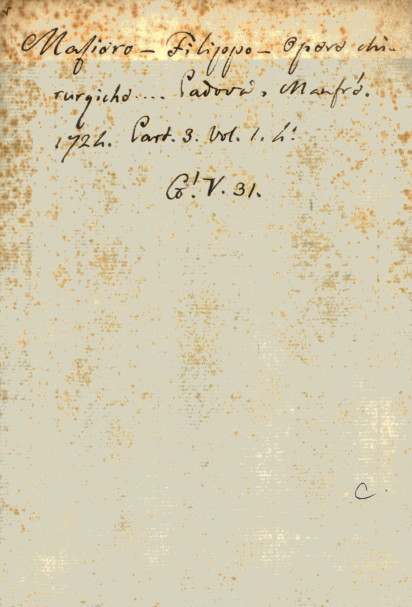 Masiero - Filippo - Opere chi-
rurgiche.... Padova, Manfré.
1724. Part. 3. Vol. 1. 4.º
Co! V. 31.
C